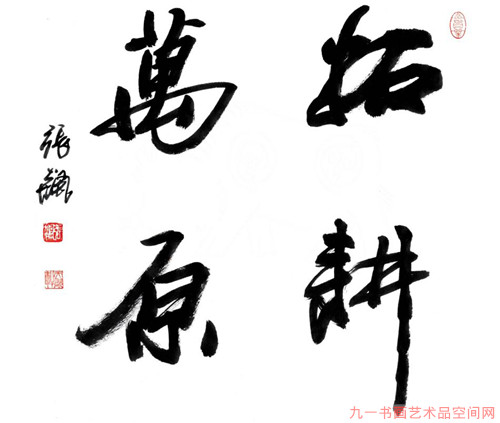 拓耕
萬原
張飆
九一书画艺术品空间网